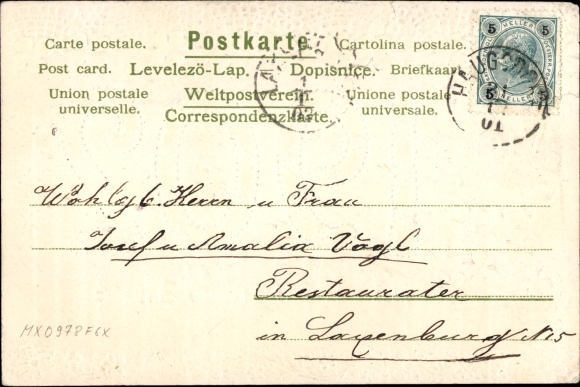 Carte postale. Postkarte. Cartolina postale.
Post card. Levelezö-Lap. Dopisnice. Briefkaart
Union postale universelle. Weltpostverein. Unione postale universale.
Correspondenzkarte.
5 HELLER 5
5 HELLER
31
12
01
Wohlgb. Herrn u Frau
Josef u Amalia Vogl
Restaurater
in Laxenburg N 5
MX0978F6X